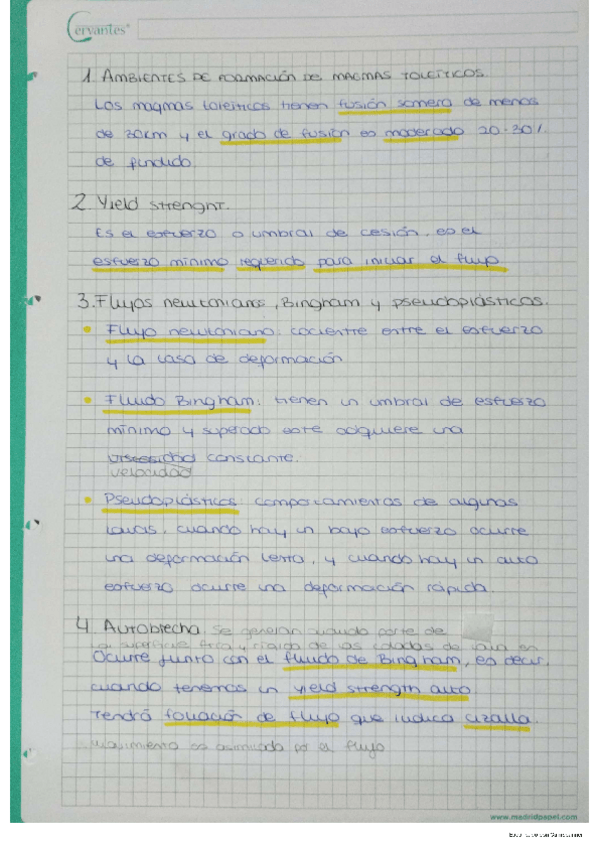 Cervantes
1. AMBIENTES DE FORMACIÓN DE MAGMAS TOLEÍTICOS.
Los magmas toleíticos tienen fusión somera de menos
de 30km y el grado de fusión es moderado 20-30%
de fundido.
2. Yield strenght.
Es el esfuerzo o umbral de cesión, es el
esfuerzo mínimo requerido para iniciar el flujo.
3. Flujos newtonianos, Bingham y pseudoplásticos.
Flujo newtoniano: cociente entre el esfuerzo
y la tasa de deformación
Fluido Bingham: tienen un umbral de esfuerzo
mínimo y superado este adquiere una
viscosidad constante.
velocidad
Pseudoplásticos: comportamientos de algunas
lavas, cuando hay un bajo esfuerzo ocurre
una deformación lenta, y cuando hay un alto
esfuerzo ocurre una deformación rápida.
4. Autobrecha se generan cuando parte de
la superficie fría y rígida de las coladas de lava en
Ocurre junto con el fluido de Bingham, es decir,
cuando tenemos un yield strength alto.
Tendrá foliación de flujo que indica cizalla.
movimiento es asimilada por el flujo
www.madridpapel.com